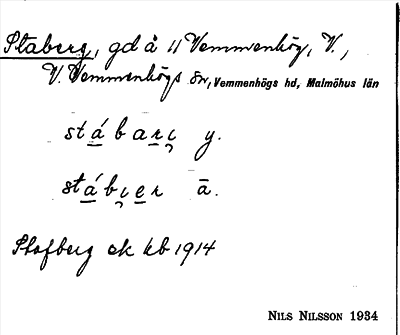 Staberg, gd å 11 Vemmenhög, V.,
V. Vemmenhögs sn, Vemmenhögs hd, Malmöhus län
stábarị y.
stábịer ā.
Stafberg ek kb 1914
NILS NILSSON 1934